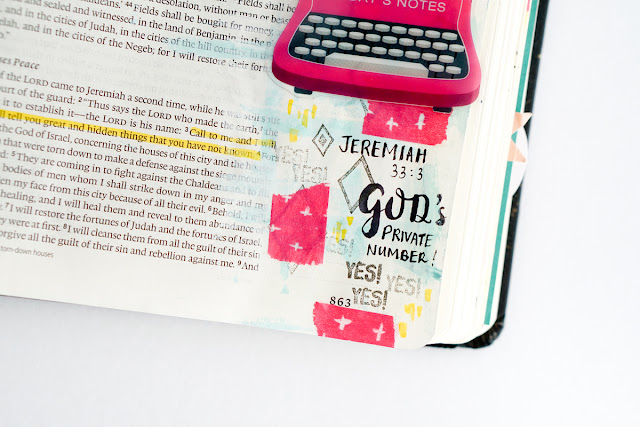 desolation, without man or beast
44 Fields shall be bought for money,
and sealed and witnessed, in the land of Benjamin, in the
and in the cities of Judah, in the cities of the hill country, in the
and in the cities of the Negeb; for I will restore their
Peace
of the LORD came to Jeremiah a second time, while he was still
court of the guard: 2 "Thus says the LORD who made the earth, the
it to establish it—the LORD is his name: 3 Call to me and I will
tell you great and hidden things that you have not known. 4 For
the God of Israel, concerning the houses of this city and the
that were torn down to make a defense against the siege
5 They are coming in to fight against the Chaldeans and to
bodies of men whom I shall strike down in my anger and my
my face from this city because of all their evil. 6 Behold, I
healing, and I will heal them and reveal to them abundance of
7 I will restore the fortunes of Judah and the fortunes of Israel,
were at first. 8 I will cleanse them from all the guilt of their sin
forgive all the guilt of their sin and rebellion against me. 9 And
torn-down houses
NOTES
JEREMIAH
33:3
GOD's
PRIVATE
NUMBER!
YES!
YES!
YES!
YES!
YES!
863